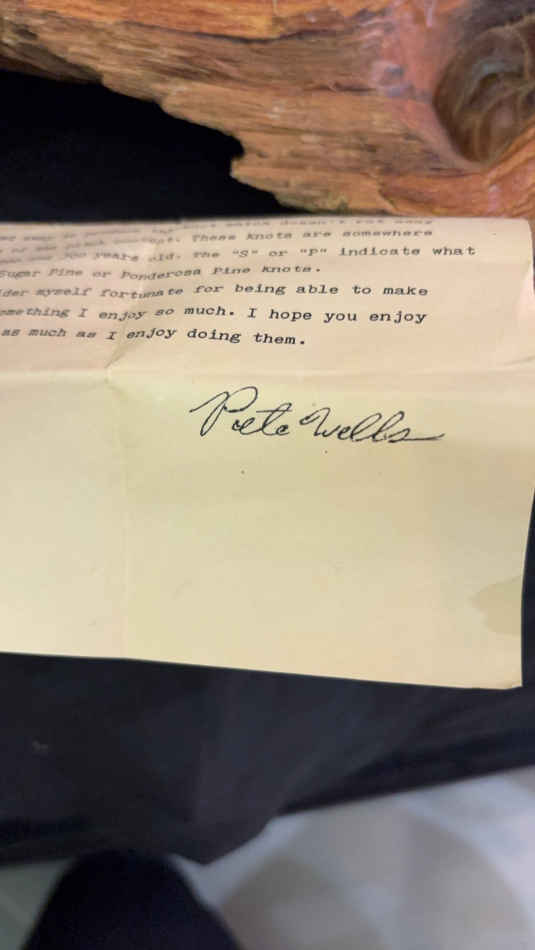 which doesn't rot away
These knots are somewhere
300 years old. The "S" or "P" indicate what
Sugar Pine or Ponderosa Pine knots.
myself fortunate for being able to make
I enjoy so much. I hope you enjoy
as much as I enjoy doing them.
Pete Wells